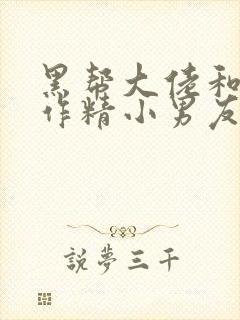 黑帮大佬和
作精小男友
說夢三千